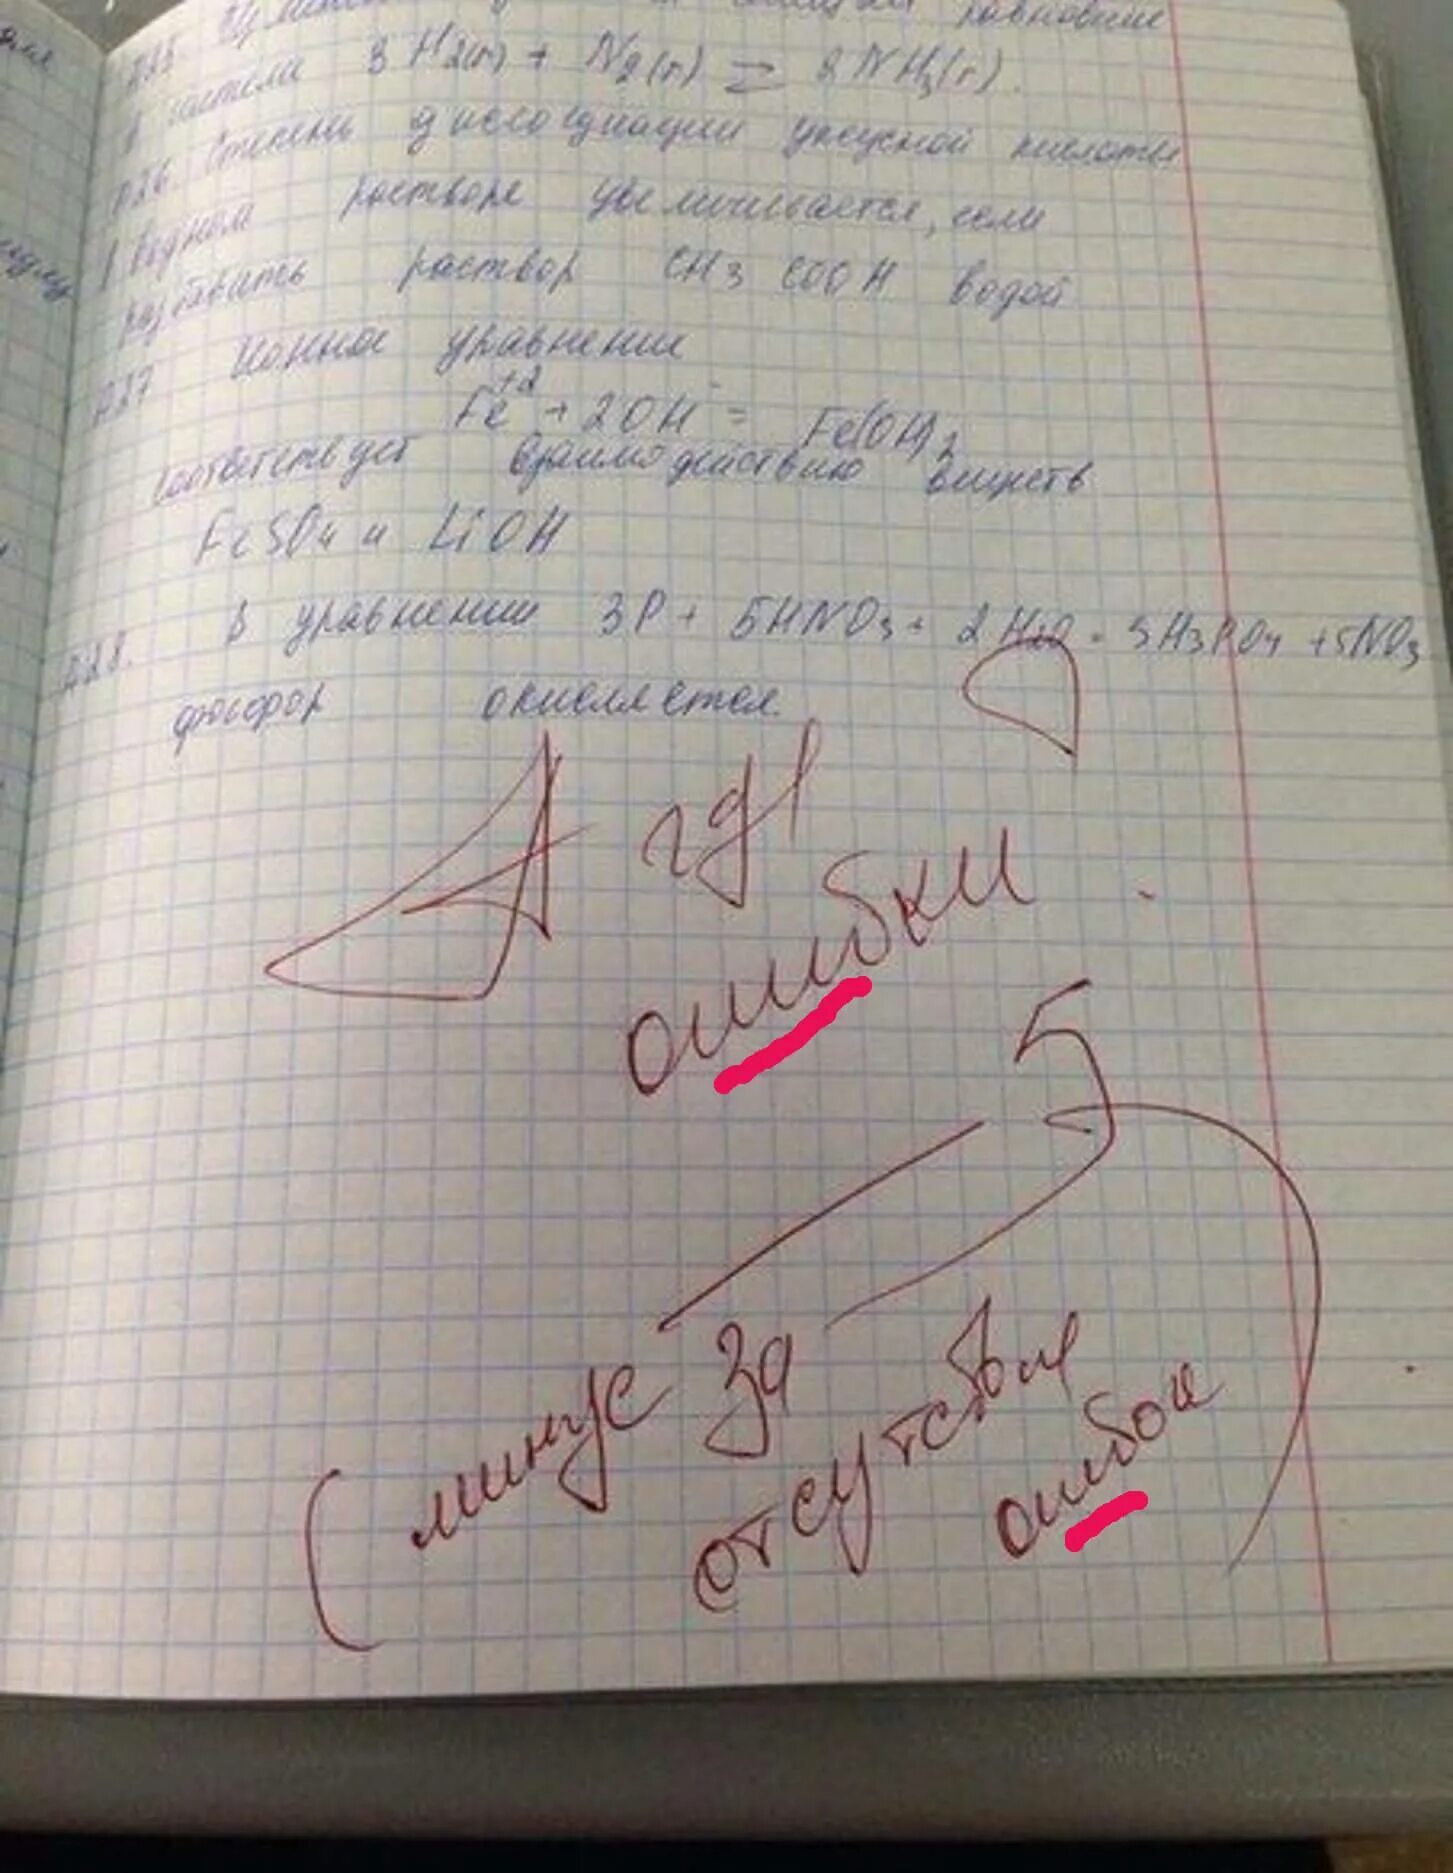 равновесие
3 H2(г) + N2(г) ⇄ 2 NH3(г).
А26. Степень диссоциации уксусной кислоты
в водном растворе увеличивается, если
разбавить раствор CH3 COOH водой
А27 Ионное уравнение
Fe+2 + 2OH- = Fe(OH)2
соответствует взаимодействию веществ
FeSO4 и LiOH
А28. В уравнении 3P + 5HNO3 + 2 H2O = 3H3PO4 + 5NO3
фосфор окисляется.
А где
ошибки
?
5-
(минус за
отсутствие
ошибок)